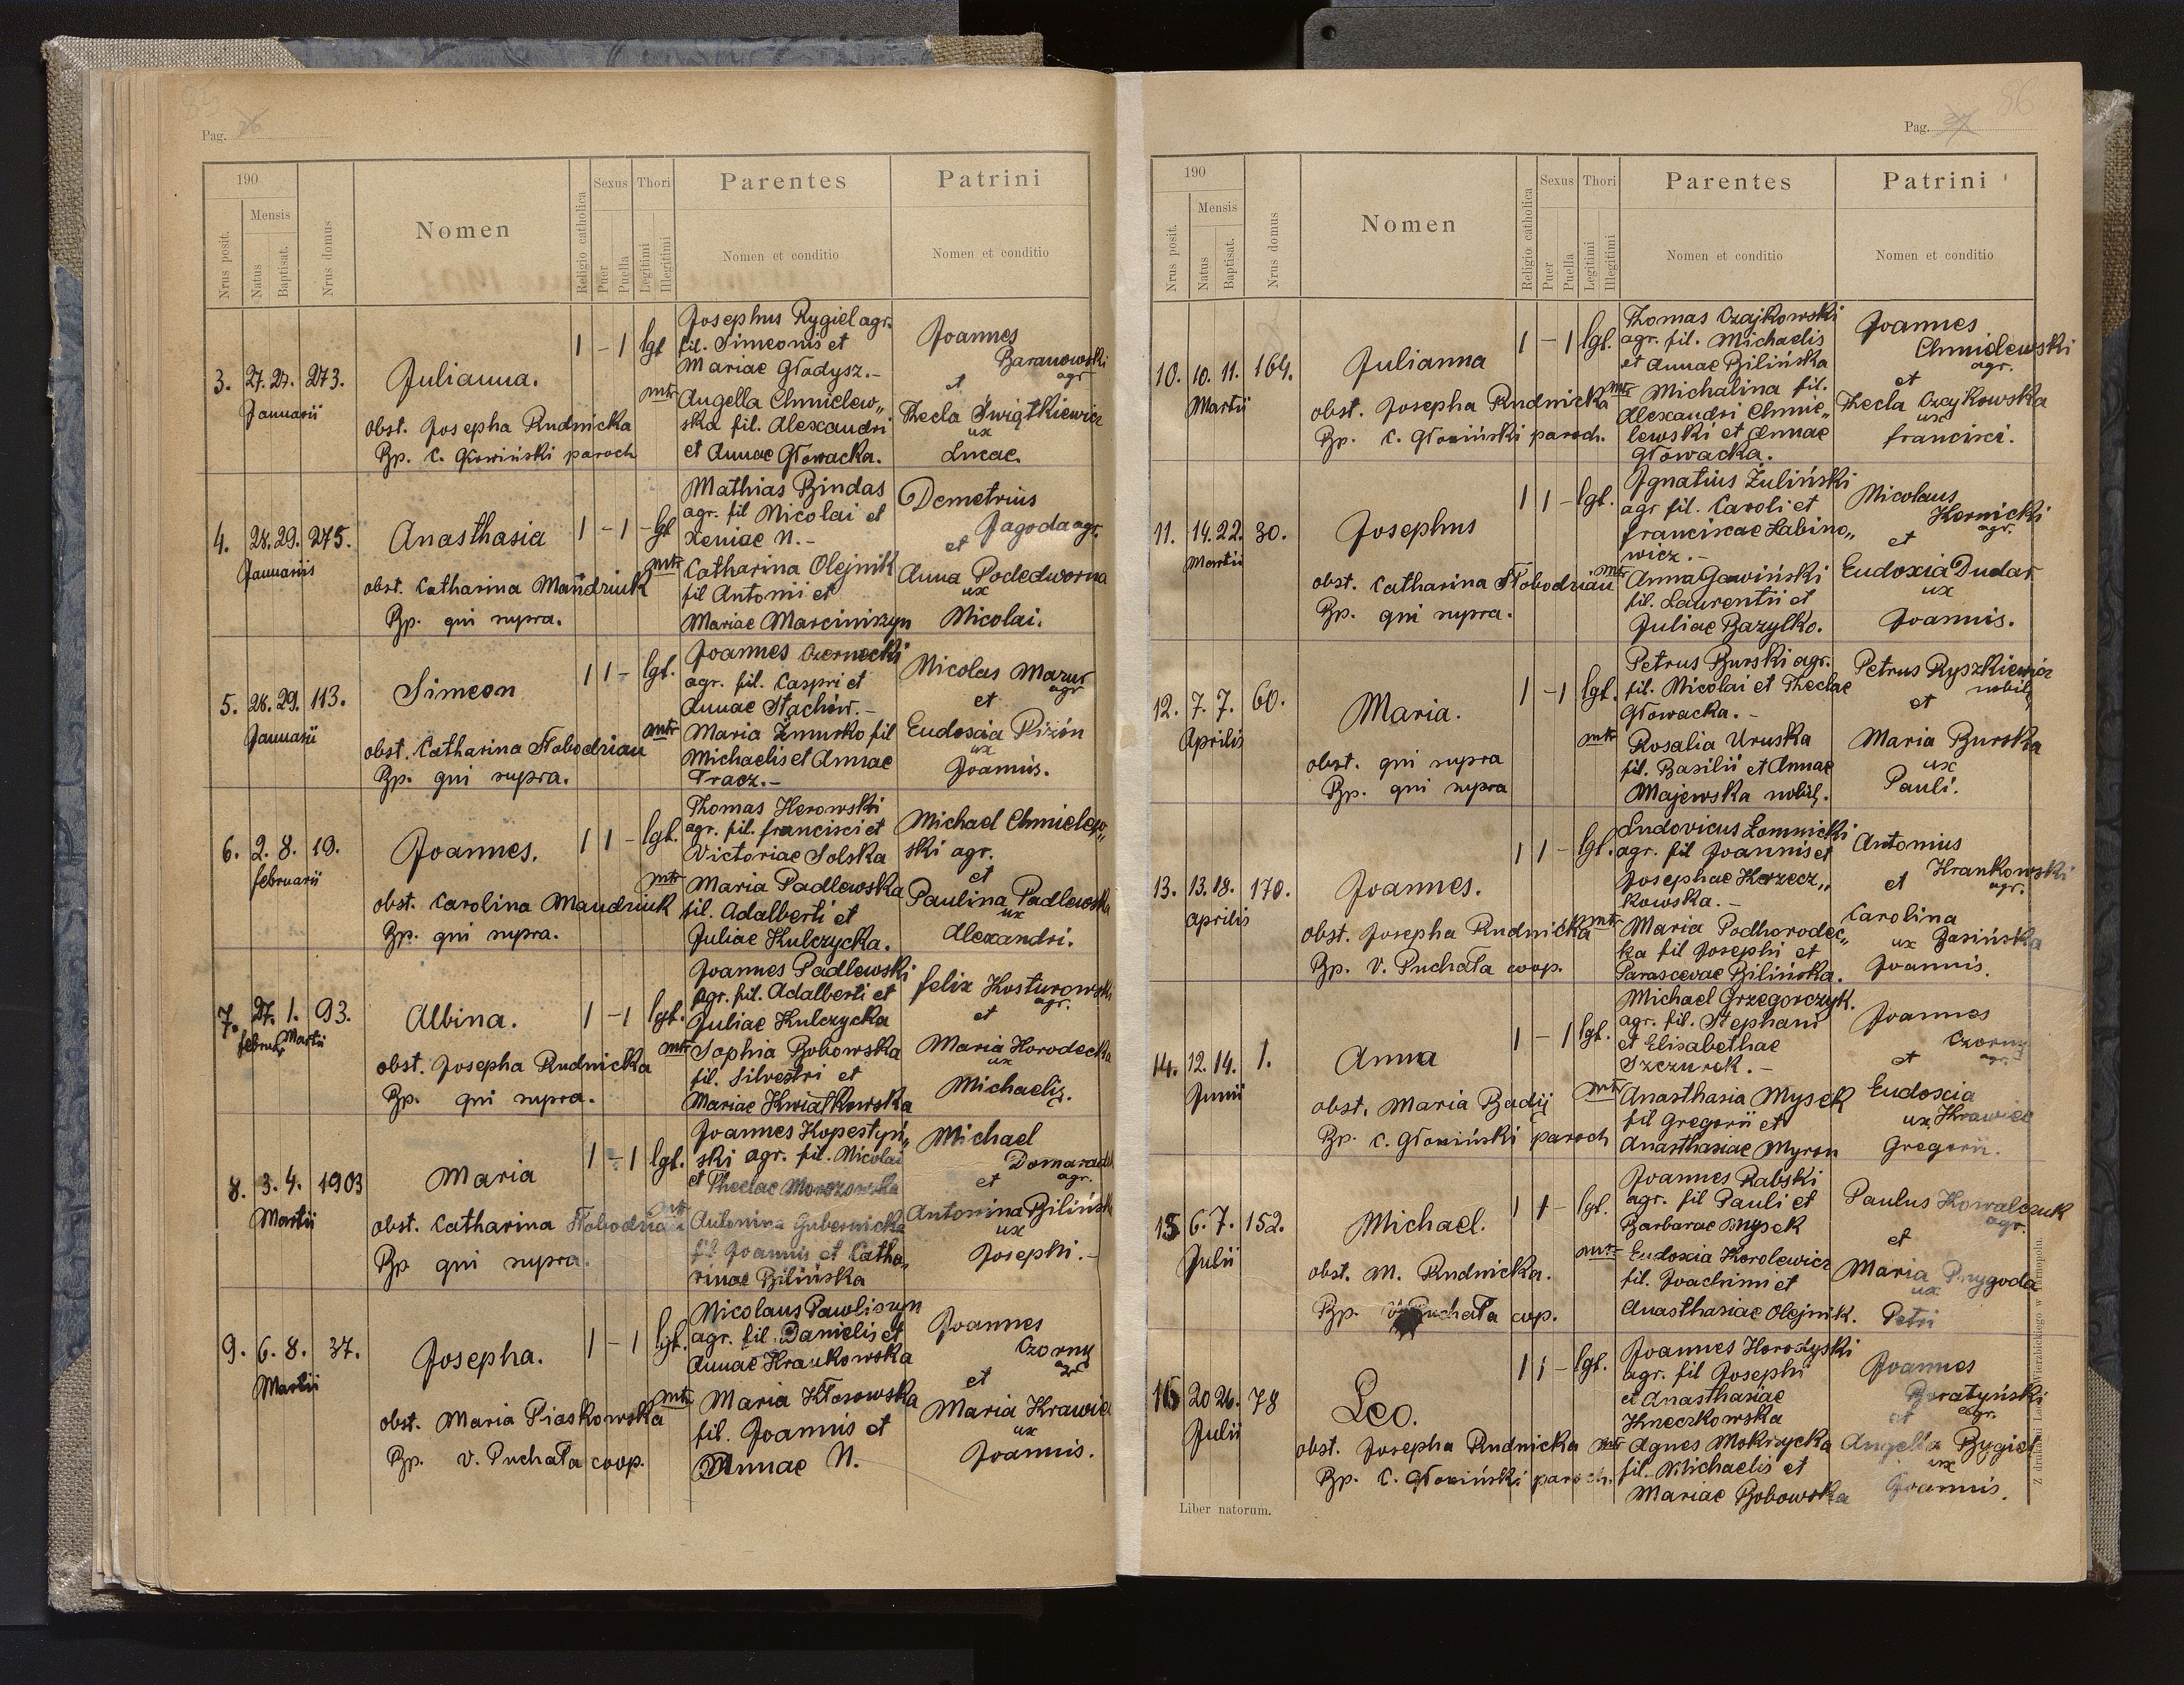 Pag. 36
190
Mensis
Nrus posit.
Natus
Baptisat.
Nrus domus
Nomen
Religio catholica
Sexus
Puer
Puella
Thori
Legitimi
Illegitimi
Parentes
Nomen et conditio
Patrini
Nomen et conditio
3. 27. 27. 273.
Januarii
Julianna.
obst. Josepha Rudnicka
Bp. C. Głowiński paroch
1 - 1 lgl
Josephus Rygiel agr.
fil. Simeonis et
Mariae Gładysz.-
mtr Angella Chmielew„
ska fil. Alexandri
et Annae Głowacka.
Joannes
Baranowski
agr
et
Thecla Świątkiewicz
ux
Lucae.
4. 28. 29. 275.
Januariis
Anasthasia
obst. Catharina Mandziuk
Bp. qui supra.
1 - 1 - lgl
Mathias Bindas
agr. fil Nicolai et
Xeniae N.-
mtr Catharina Olejnik
fil Antonii et
Mariae Marciniszyn
Demetrius
Jagoda agr.
et
Anna Podedworna
ux
Nicolai.
5. 28. 29. 113.
Januarii
Simeon
obst. Catharina Słobodzian
Bp. qui supra.
1 1 - lgl.
Joannes Czernecki
agr. fil. Caspri et
Annae Stachów.-
mtr Maria Żmurko fil
Michaelis et Annae
Tracz.-
Nicolas Mazur
agr
et
Eudoxia Pizón
ux
Joannis.
6. 2. 8. 19.
februarii
Joannes.
obst. Carolina Mandziuk
Bp. qui supra.
1 1 - lgl.
Thomas Herowski
agr. fil. francisci et
Victoriae Solska
mtr Maria Padlewska
fil. Adalberti et
Juliae Kulczycka.
Michael Chmielew„
ski agr.
et
Paulina Padlewska
ux
Alexandri.
7. 27. 1. 93.
februar Martii
Albina.
obst. Josepha Rudnicka
Bp. qui supra.
1 - 1 lgl.
Joannes Padlewski
agr. fil. Adalberti et
Juliae Kulczycka
mtr Sophia Bobowska
fil. Silvestri et
Mariae Kwiatkowska
felix Kosturowski
agr.
et
Maria Horodecka
ux
Michaelis.
8. 3. 4. 1903
Martii
Maria
obst. Catharina Słobodzian
Bp qui supra.
1 - 1 lgl.
Joannes Kopestyń„
ski agr. fil. Nicolai
et Theclae Morozowska
mtr Antonina Gubernicka
fil Joannis et Catha„
rinae Bilińska
Michael
Domaradz
agr.
et
Antonina Bilińska
ux
Josephi.-
9. 6. 8. 37.
Martii
Josepha.
obst. Maria Piaskowska
Bp. V. Puchała coop.
1 - 1 lgl.
Nicolaus Pawliszyn
agr. fil. Danielis et
Annae Krankowska
mtr Maria Kłosowska
fil. Joannis et
Annae N.
Joannes
Czorny
agr
et
Maria Krawiec
ux
Joannis.
Pag. 37
86
190
Mensis
Nrus posit.
Natus
Baptisat.
Nrus domus
Nomen
Religio catholica
Sexus
Puer
Puella
Thori
Legitimi
Illegitimi
Parentes
Nomen et conditio
Patrini
Nomen et conditio
10. 10. 11. 164.
Martii
Julianna
obst. Josepha Rudnicka
Bp. C. Głowiński paroch.
1 - 1 lgl.
Thomas Czajkowski
agr. fil. Michaelis
et Annae Bilińska
mtr Michalina fil.
Alexandri Chmie„
lewski et Annae
Głowacka.
Joannes
Chmielewski
agr.
et
Thecla Czajkowska
ux
francisci.
11. 14. 22. 30.
Martii
Josephus
obst. Catharina Słobodzian
Bp. qui supra.
1 1 - lgl.
Ignatius Żuliński
agr fil. Caroli et
franciscae Labino„
wicz.-
mtr Anna Gawiński
fil. Laurentii et
Juliae Bazylko.
Nicolaus
Kornicki
agr.
et
Eudoxia Dudar
ux
Joannis.
12. 7. 7. 60.
Aprilis
Maria.
obst. qui supra
Bp. qui supra
1 - 1 lgl.
Petrus Burski agr.
fil. Nicolai et Theclae
Głowacka.-
mtr Rosalia Uruska
fil. Basilii et Annae
Majewska nobil.
Petrus Ryszkiewicz
nobil,
et
Maria Burska
ux
Pauli.
13. 13. 18. 170.
Aprilis
Joannes.
obst. Josepha Rudnicka
Bp. V. Puchała coop.
1 1 - lgl.
Ludovicus Łomnicki
agr. fil Joannis et
Josephae Korzecz„
kowska.-
mtr Maria Podhorodec„
ka fil Josephi et
Parascevae Bilińska.
Antonius
Krankowski
agr.
et
Carolina
ux Jasińska
Joannis.
14. 12. 14. 1.
Junii
Anna
obst. Maria Badij
Bp. C. Głowiński paroch
1 - 1 lgl.
Michael Grzegorczyk.
agr. fil. Stephani
et Elisabethae
Szczurek.-
mtr Anasthasia Mysek
fil Gregorii et
Anasthasiae Myron
Joannes
Czorny
agr.
et
Eudoxia
ux Krawiec
Gregorii.
15 6. 7. 152.
Julii
Michael.
obst. M. Rudnicka.
Bp. V. Puchała cop.
1 1 - lgl.
Joannes Rabski
agr. fil Pauli et
Barbarae Mysek
mtr Eudoxia Korolewicz
fil. Joachimi et
Anasthasiae Olejnik.
Paulus Kowalczuk
agr.
et
Maria Przygoda
ux
Petri
16 20 26. 78
Julii
Leo.
obst. Josepha Rudnicka
Bp. C. Głowiński paroch.
1 1 - lgl.
Joannes Horodyski
agr. fil Josephi
et Anasthasiae
Kneczkowska
mtr Agnes Mokrzycka
fil. Michaelis et
Mariae Bobowska
Joannes
Boratyński
agr.
et
Angella Rygiel
ux
Joannis.
Liber natorum.
Z drukarni Lud. Wierzbickiego w Tarnopolu.